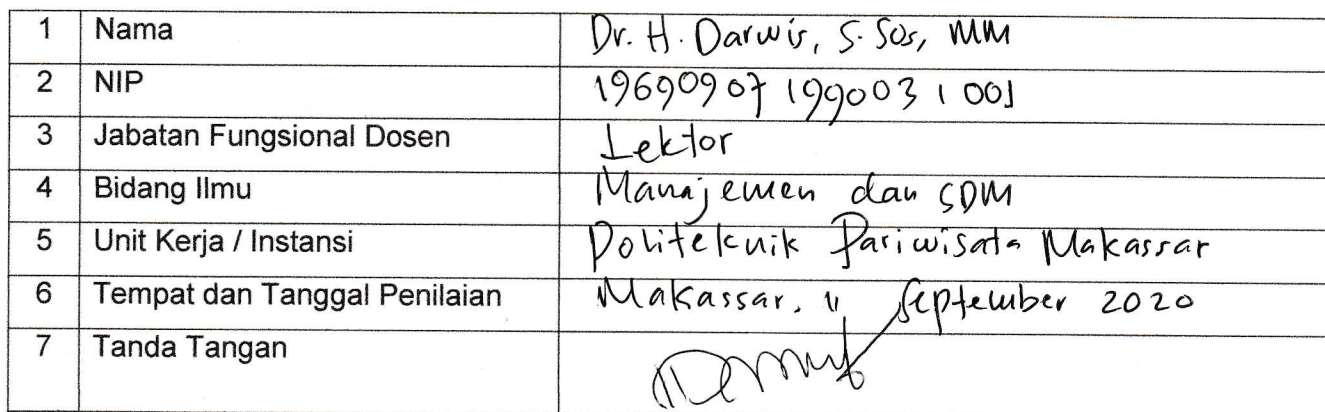 1 Nama Dr. H. Darwis, S. Sos, MM
2 NIP 19690907 199003 1 001
3 Jabatan Fungsional Dosen Lektor
4 Bidang Ilmu Manajemen dan SDM
5 Unit Kerja / Instansi Politeknik Pariwisata Makassar
6 Tempat dan Tanggal Penilaian Makassar, 11 September 2020
7 Tanda Tangan